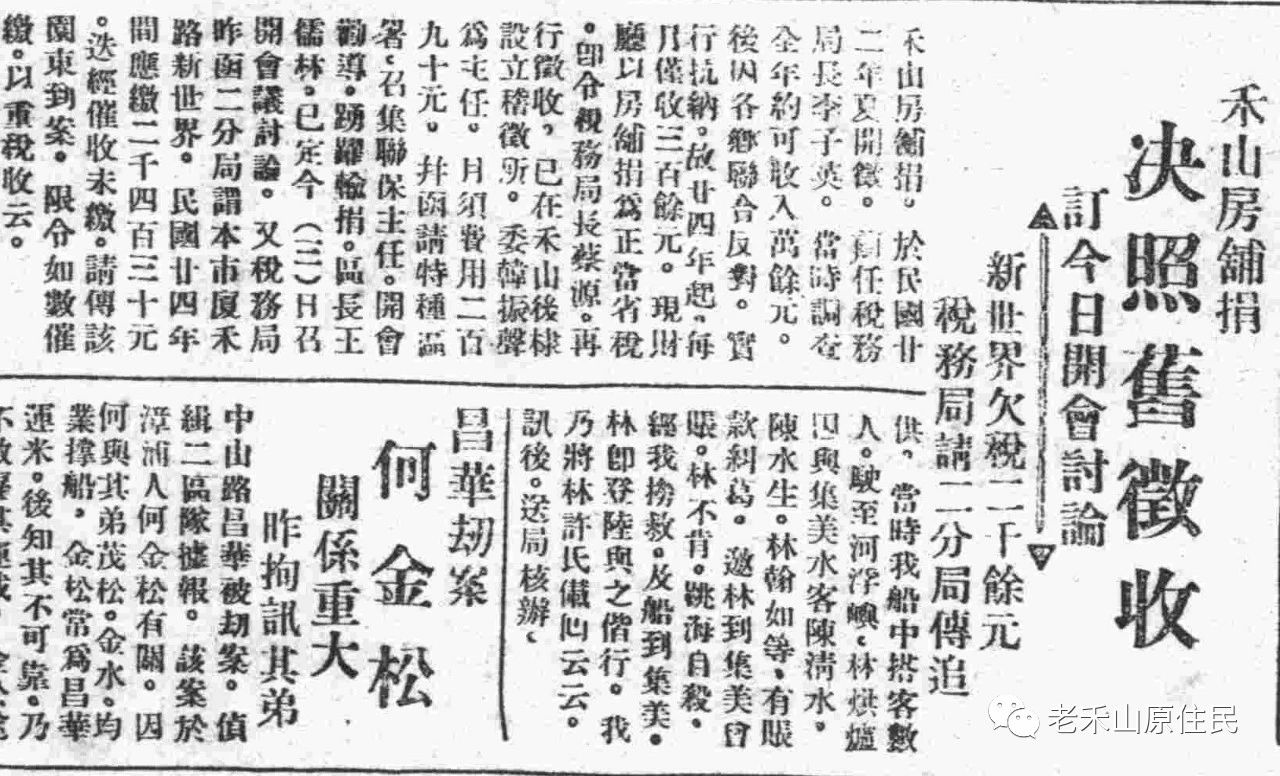 禾山房舖捐
決照舊徵收
訂今日開會討論
新世界欠稅二千餘元
稅務局請二分局傳追
禾山房舖捐。於民國廿
二年夏開徵。前任稅務
局長李子英。當時調查
全年約可收入萬餘元。
後因各鄉聯合反對。實
行抗納。故廿四年起。每
月僅收三百餘元。現財
廳以房舖捐爲正當省稅
。卽令稅務局長蔡源。再
行徵收。已在禾山後棣
設立稽徵所。委韓振聲
爲主任。月須費用二百
九十元。幷函請特種區
署、召集聯保主任。開會
勸導。踴躍輸捐。區長王
儒林。已定今（三）日召
開會議討論。又稅務局
昨函二分局謂本市厦禾
路新世界。民國廿四年
間應繳二千四百三十元
。迭經催收未繳。請傳該
園東到案。限令如數催
繳。以重稅收云。
供、當時我船中搭客數
人。駛至河浮嶼、林烘爐
因與集美水客陳淸水。
陳水生。林翰如等、有賬
款糾葛。邀林到集美會
賬。林不肯。跳海自殺。
經我撈救。及船到集美。
林卽登陸與之偕行。我
乃將林許氏儎回云云。
訊後。送局核辦、
昌華刼案
何金松
關係重大
昨拘訊其弟
中山路昌華被刼案。偵
緝二區隊據報。該案於
漳浦人何金松有關。因
何與其弟茂松。金水。均
業撑船。金松常爲昌華
運米。後知其不可靠。乃
老禾山原住民